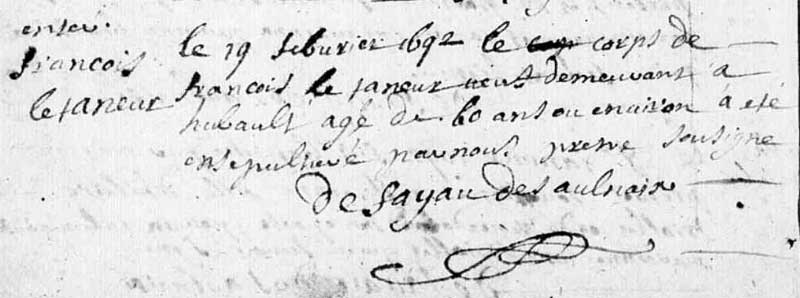 enter.
francois
le taneur
le 19 feburier 1692 le corps de
francois le taneur veuf demeurant à
hubault agé de 60 ans ou enuiron a eté
ensepulturé par nous pretre sousigné
De sayau des aulnais